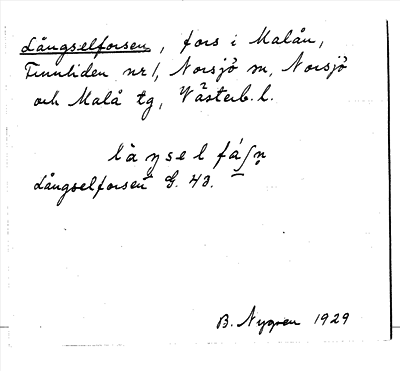 Långselforsen, fors i Malån,
Finnliden nr 1, Norsjö sn, Norsjö
och Malå tg, Västerb. l.
làŋselfáʃn̥
Långselforsen G. 43.
B. Nygren 1929